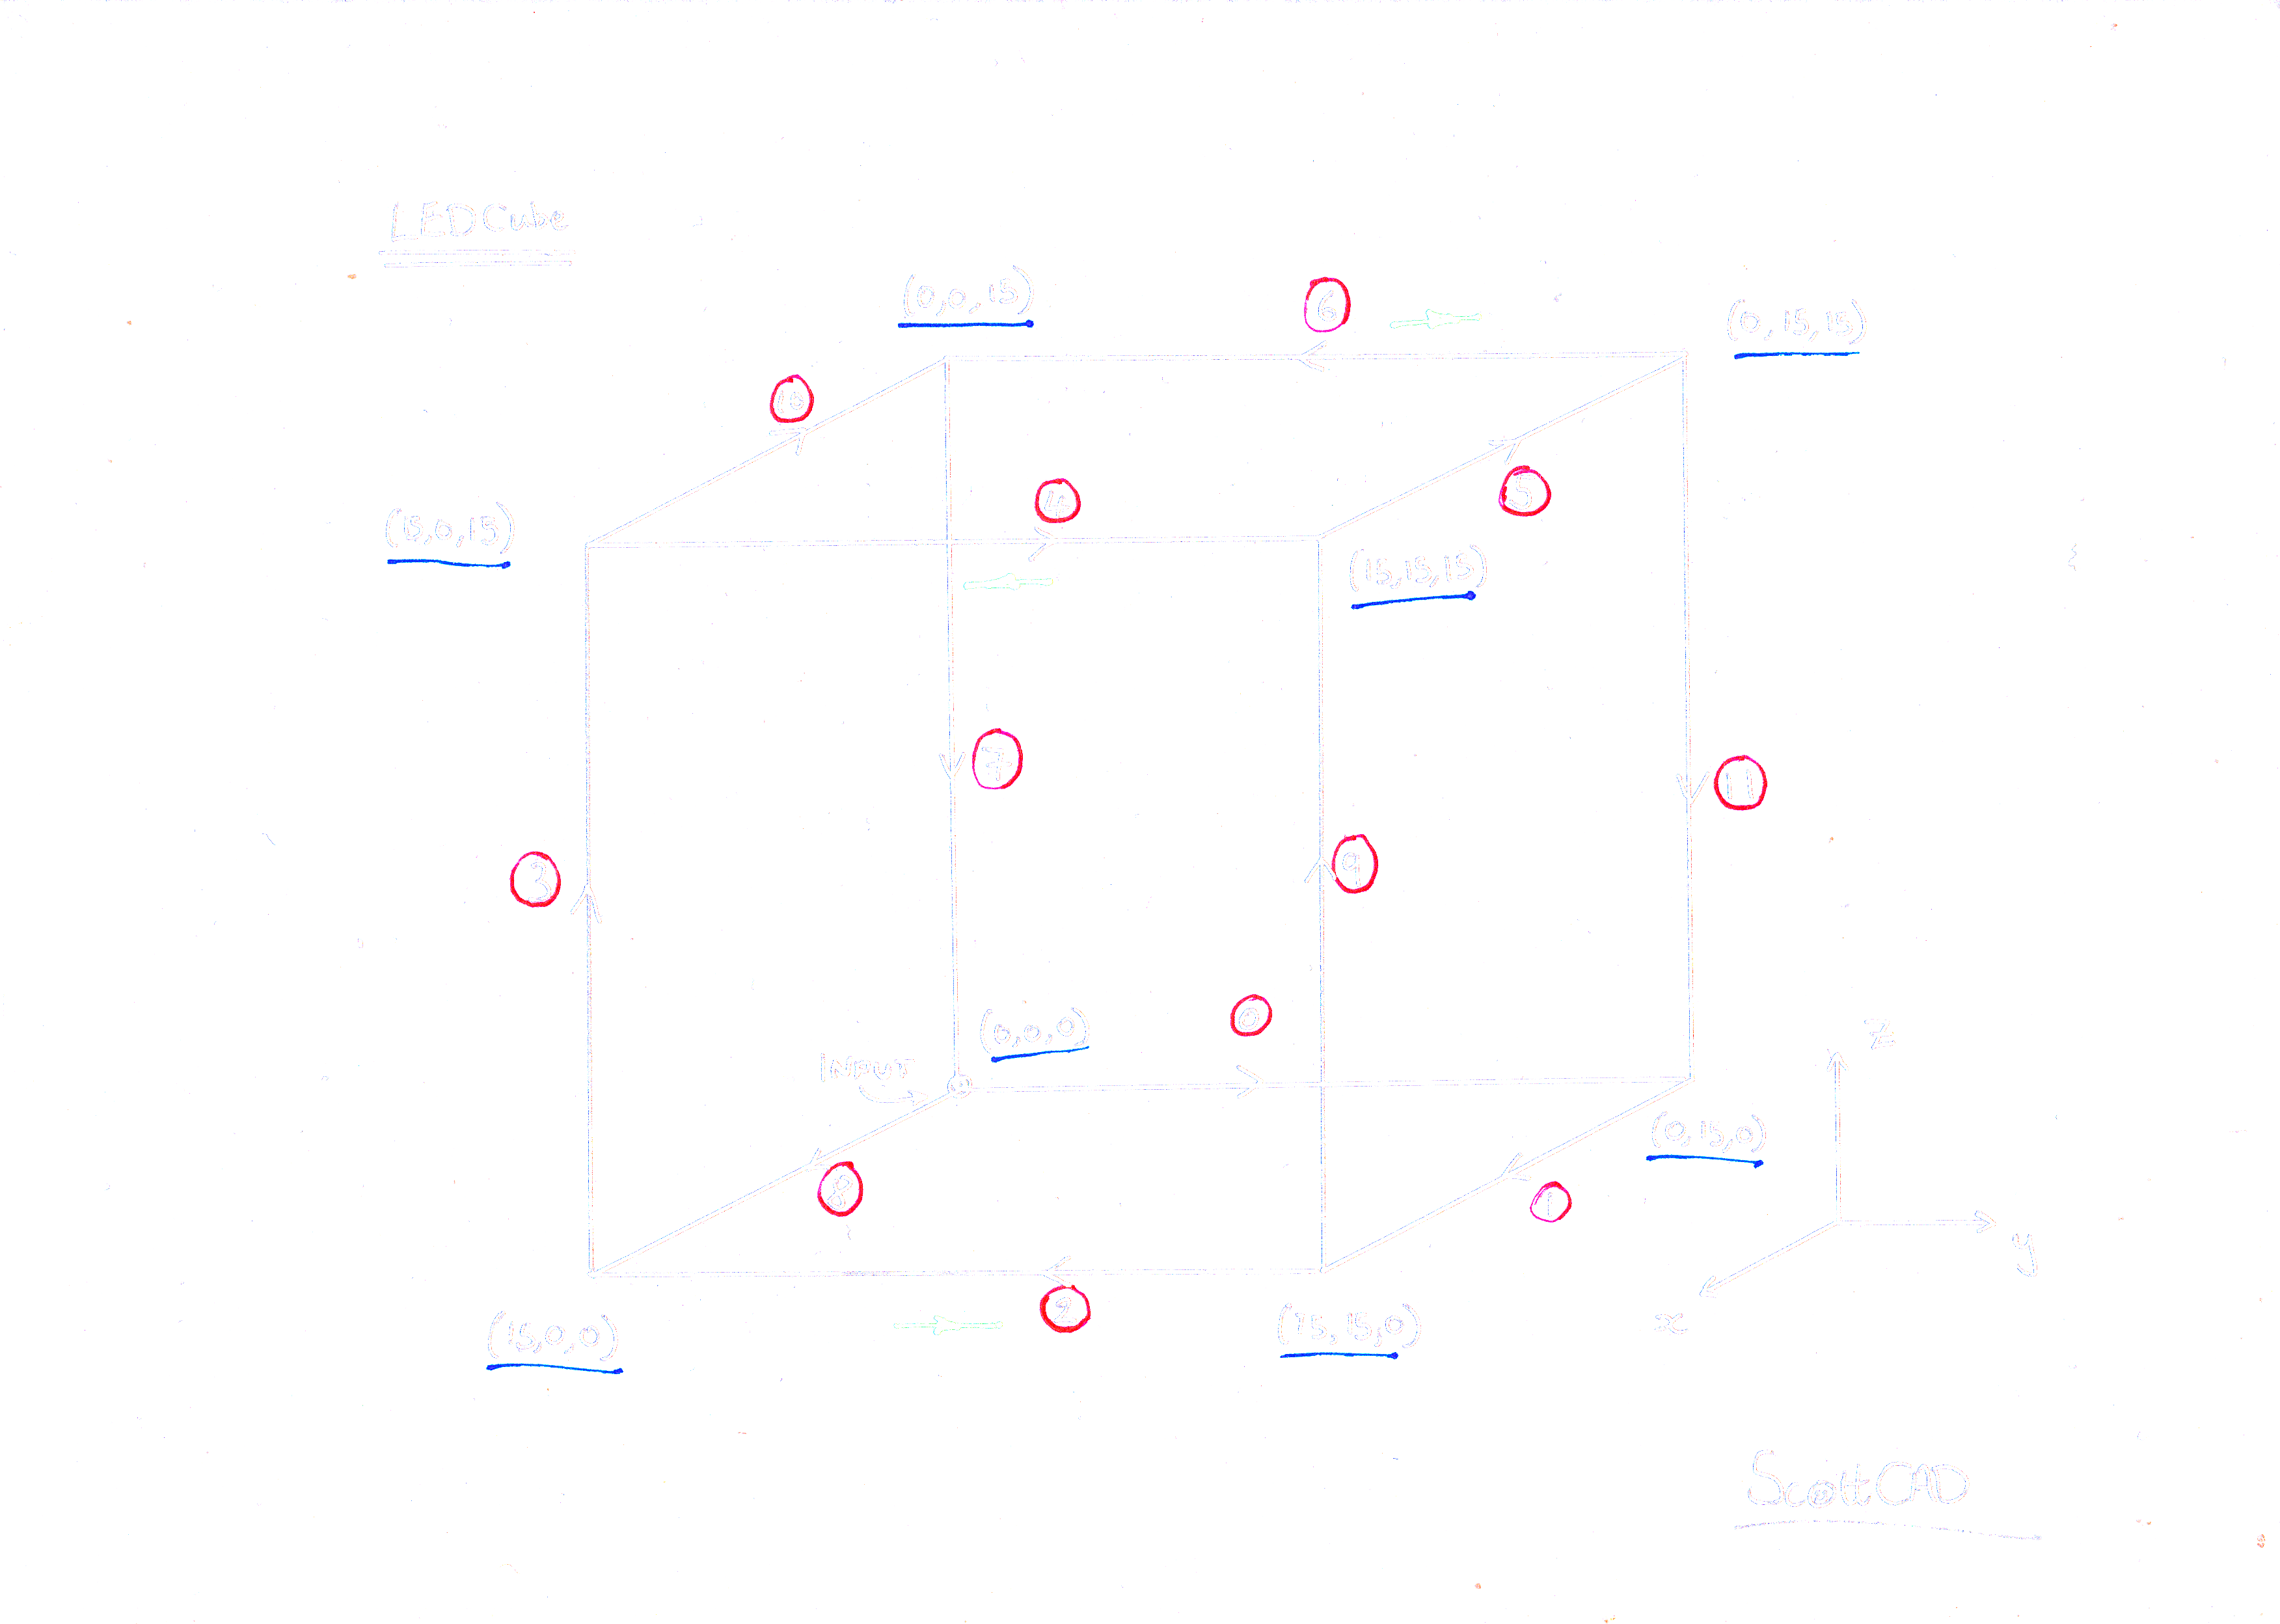 LEDCube
(0,0,15)
6
(0,15,15)
10
4
5
(15,0,15)
(15,15,15)
7
11
3
9
0
(0,0,0)
INPUT
z
(0,15,0)
8
1
y
2
(15,0,0)
(15,15,0)
x
ScottCAD